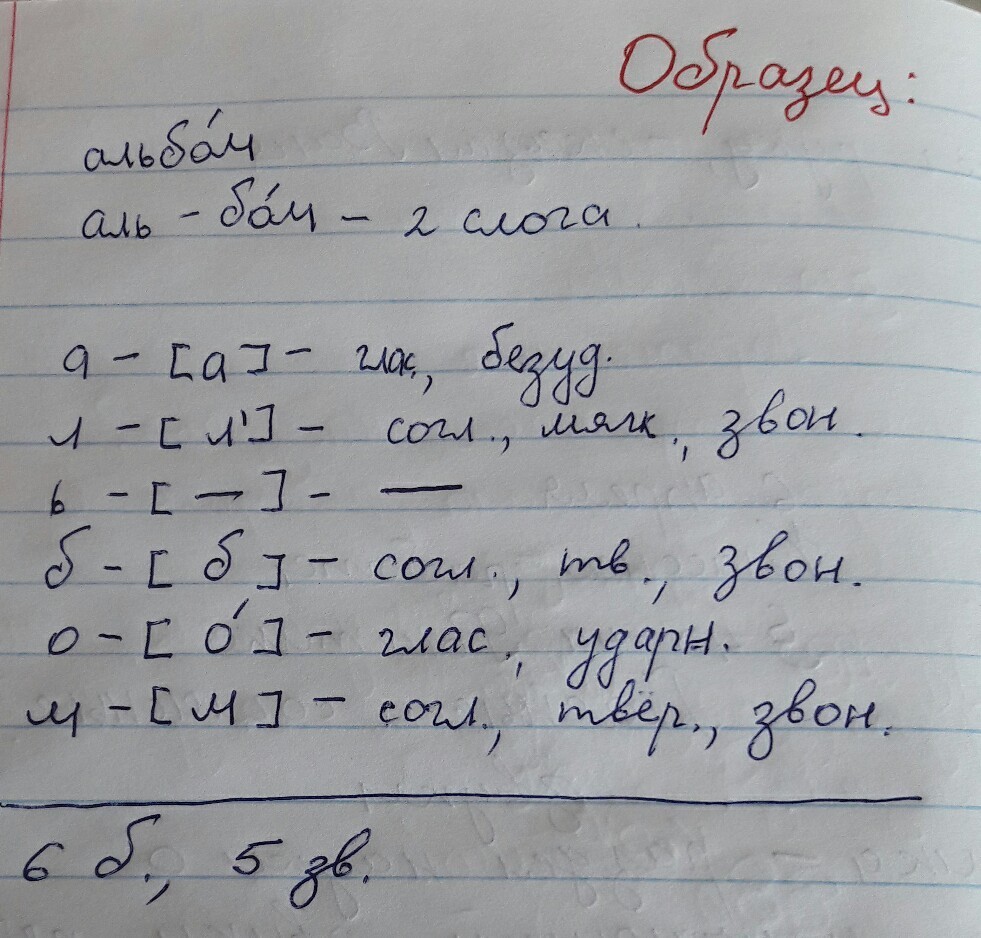 Образец:
альбо́м
аль - бо́м - 2 слога.
а - [а] - глас., безуд.
л - [л'] - согл., мягк., звон.
ь - [—] - —
б - [б] - согл., тв., звон.
о - [о́] - глас., ударн.
м - [м] - согл., твёр., звон.
6 б., 5 зв.